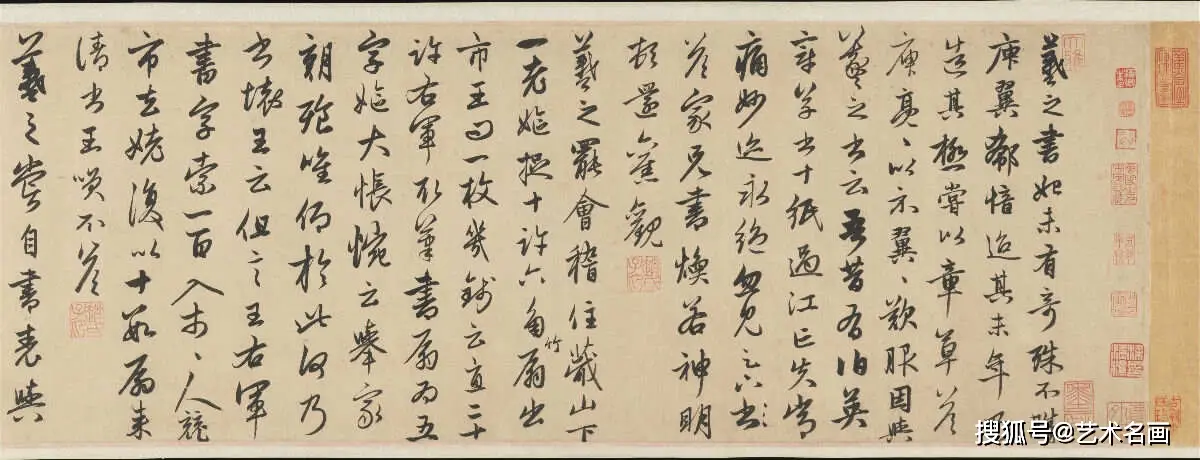 羲之書始未有奇殊不勝
庾翼郗愔迨其末年乃
造其極嘗以章草答
庾亮〻以示翼〻歎服因與
羲之書云吾昔有伯英
章草書十紙過江亡失常
痛妙迹永絕忽見足下書
答家兄書煥若神明
頓還舊觀
羲之罷會稽住蕺山下
一老嫗捉十許六角竹扇出
市王問一枚幾錢云直二十
許右軍取筆書扇為五
字嫗大悵惋云舉家
朝飱唯仰於此何乃
書壞王云但言王右軍
書字索一百入市〻人競
市去姥復以十數扇來
請書王笑不答
羲之嘗自書表與
搜狐号@艺术名画